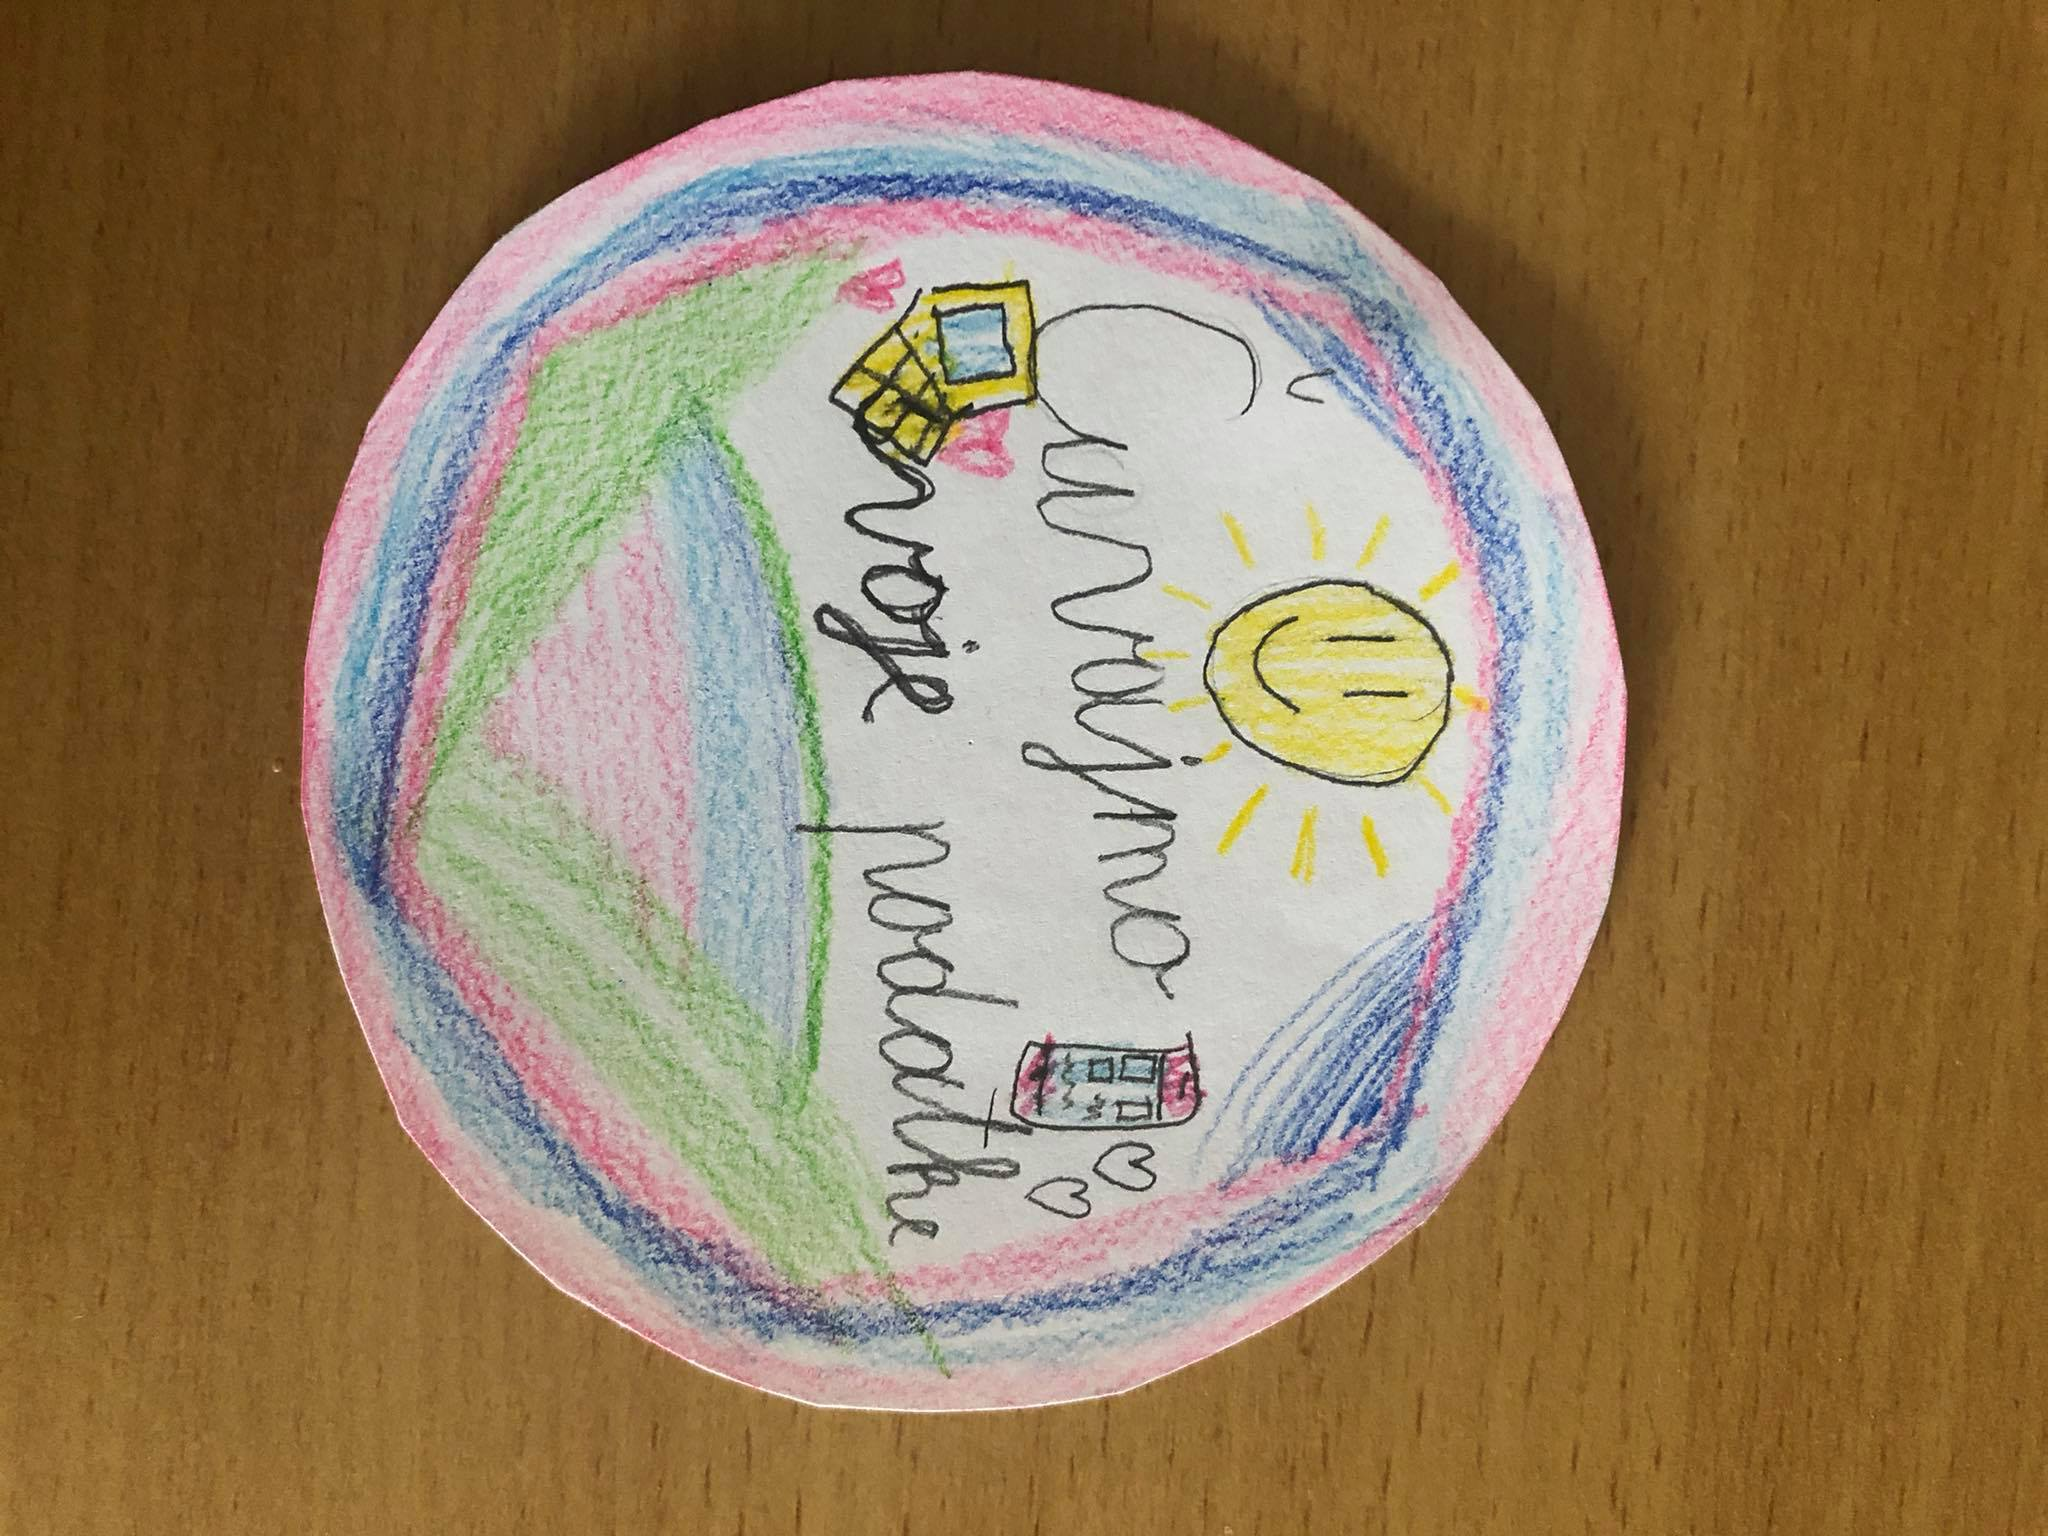 Čuvajmo
svoje podatke